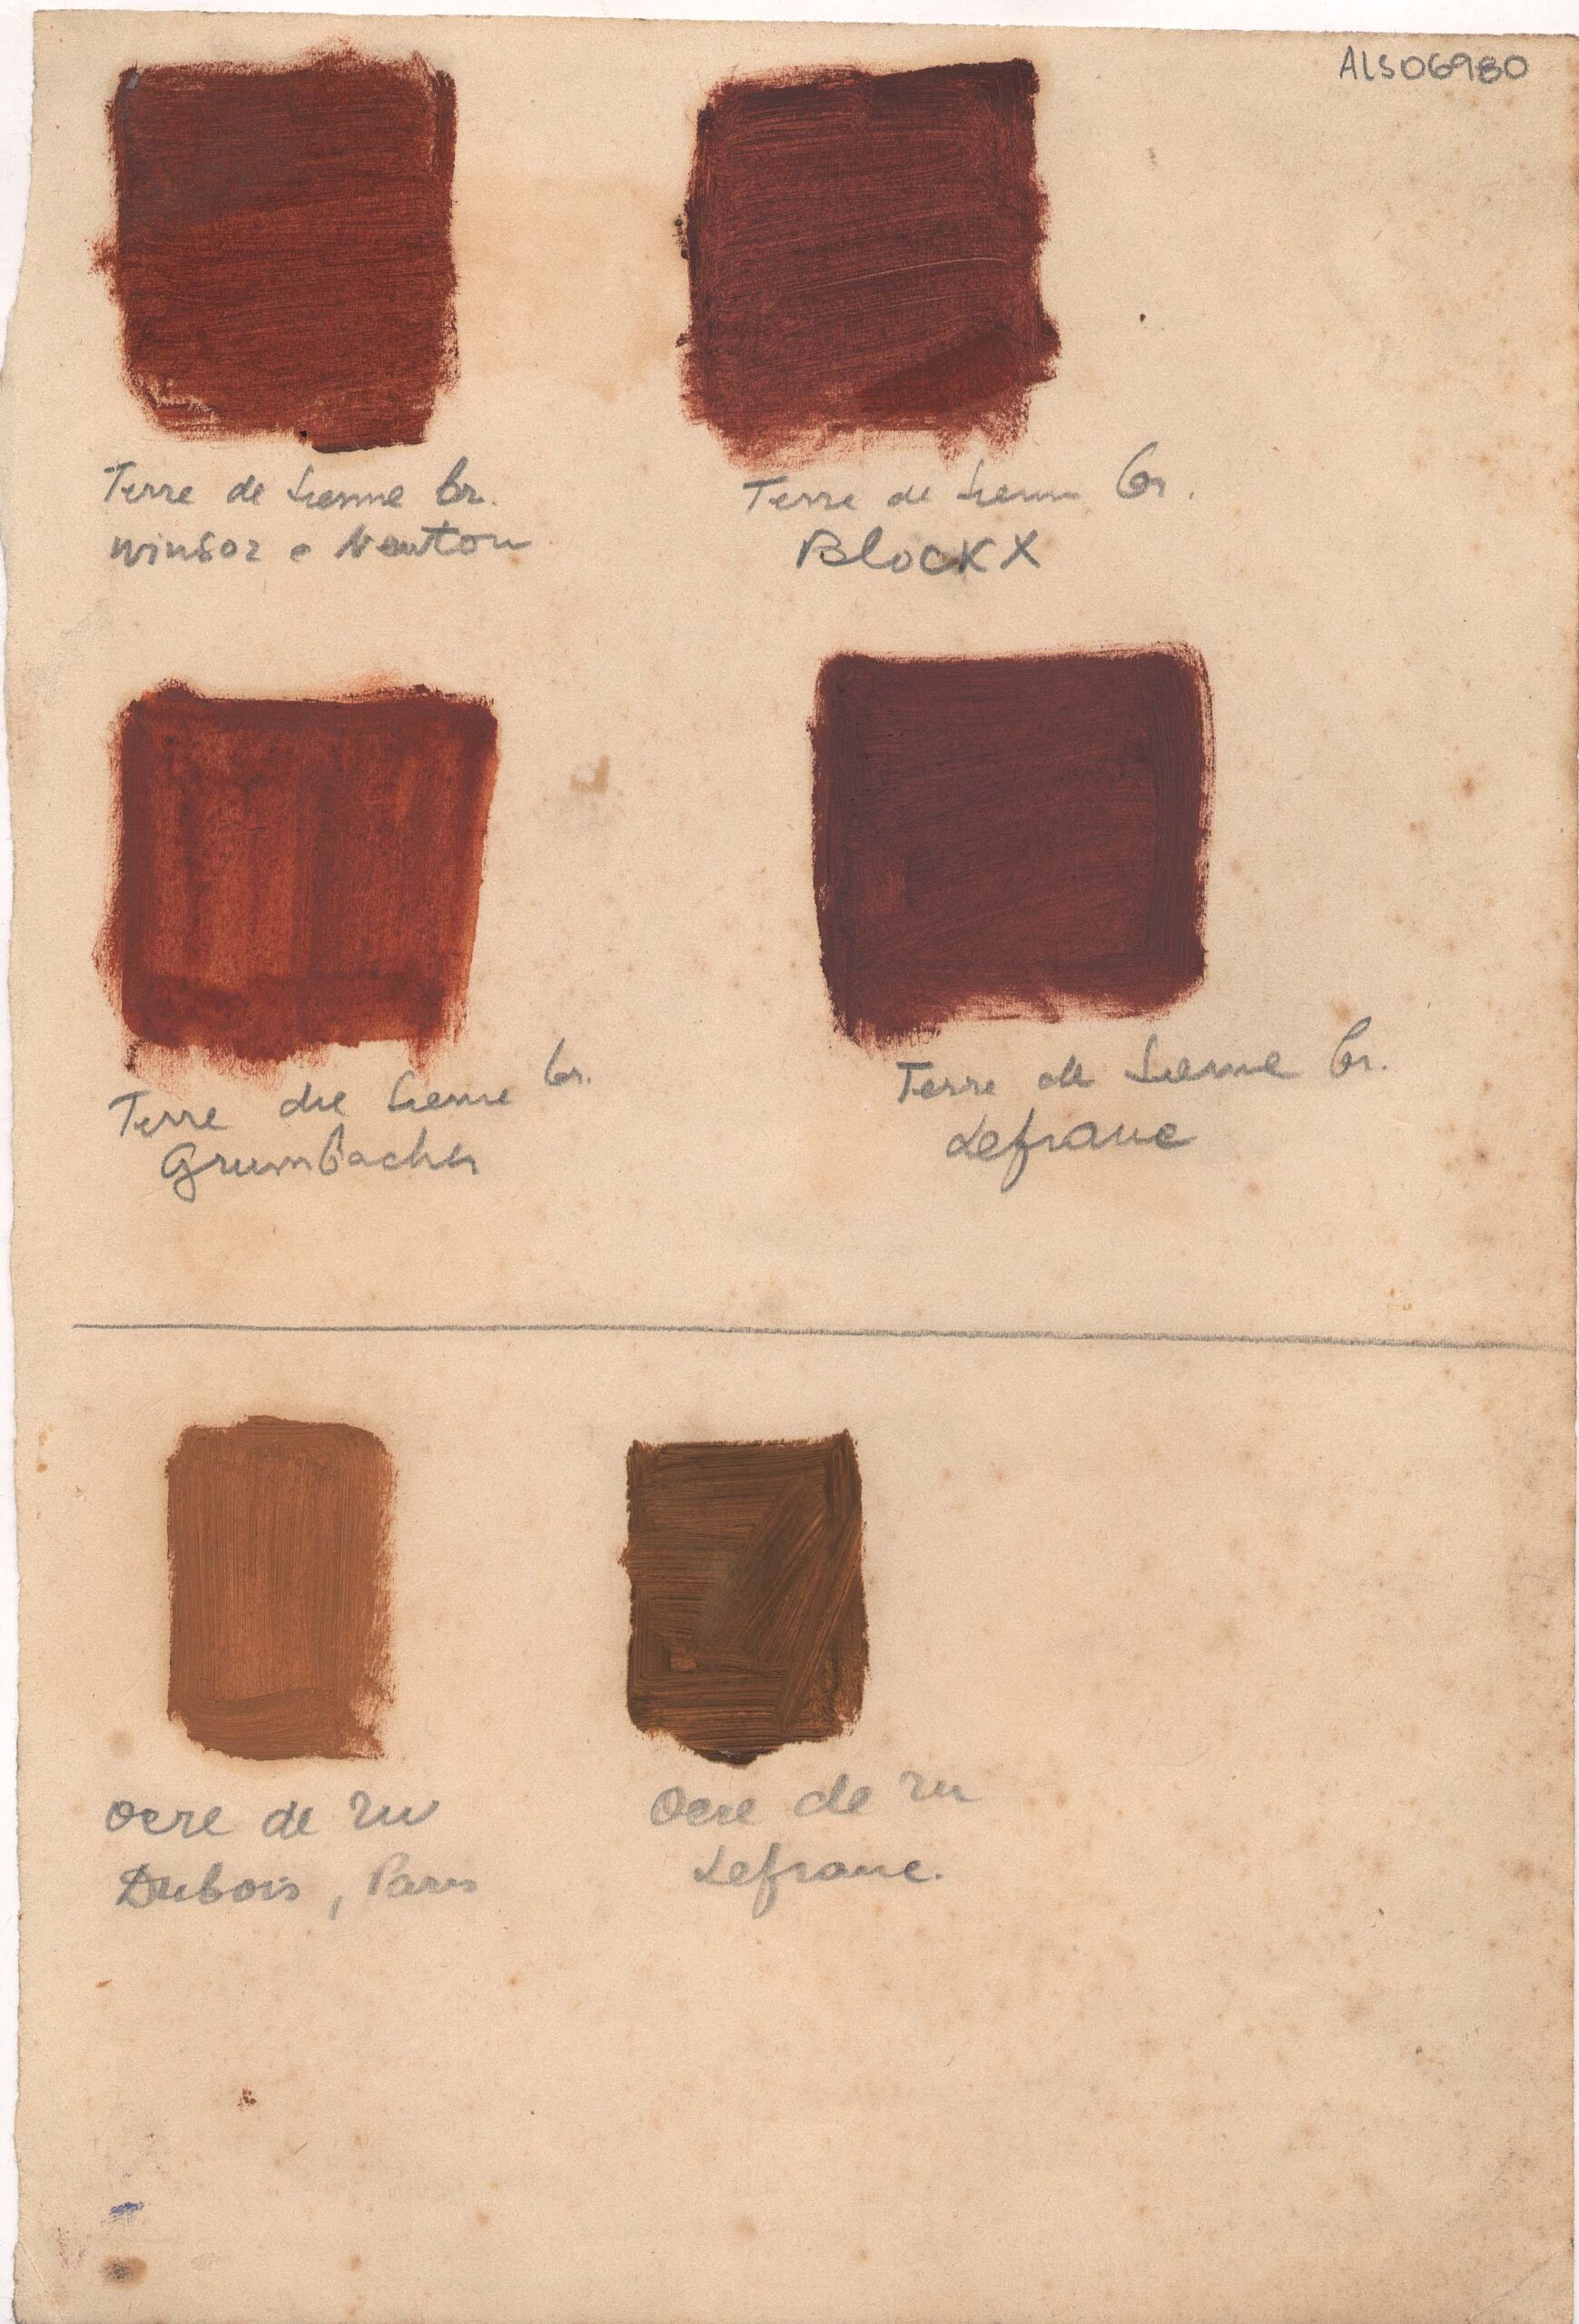 ALS06980
Terre de Sienne br.
Winsor e Newton
Terre de Sienne br.
Blockx
Terre de Sienne br.
Grumbacher
Terre de Sienne br.
Lefranc
Ocre de ru
Dubois, Paris
Ocre de ru
Lefranc.